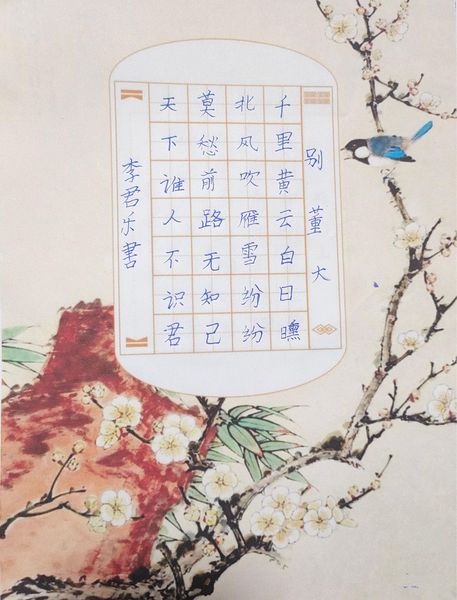 别董大
千里黄云白日曛
北风吹雁雪纷纷
莫愁前路无知己
天下谁人不识君
李君乐書